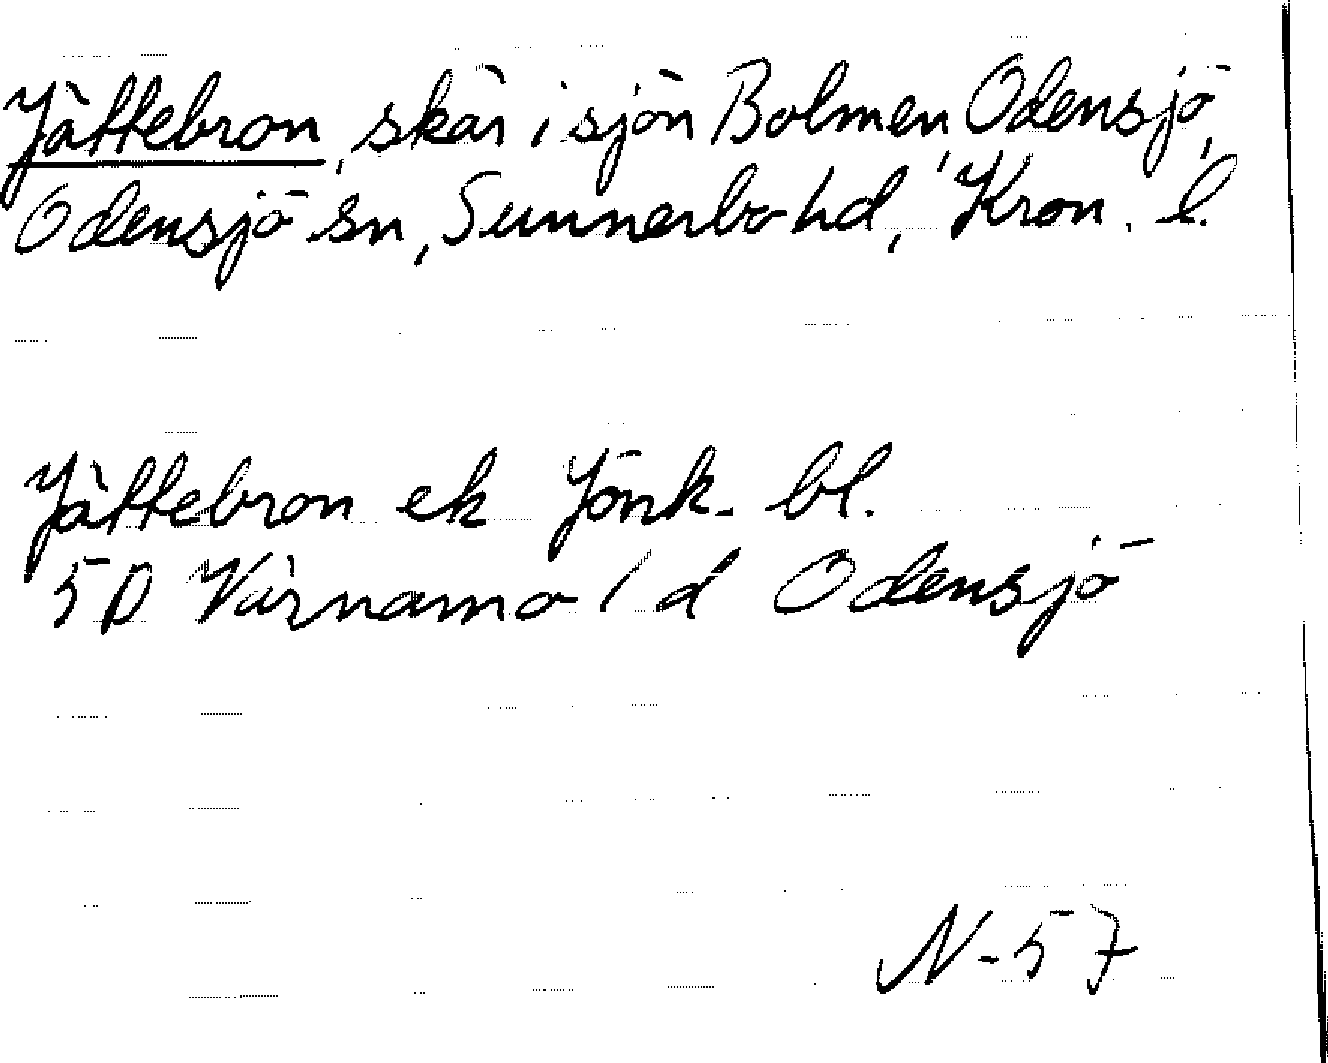 Jättebron, skär i sjön Bolmen, Odensjö,
Odensjö sn, Sunnerbo hd, Kron. l.
Jättebron ek Jönk. bl.
5D Värnamo 1 d Odensjö
N-57